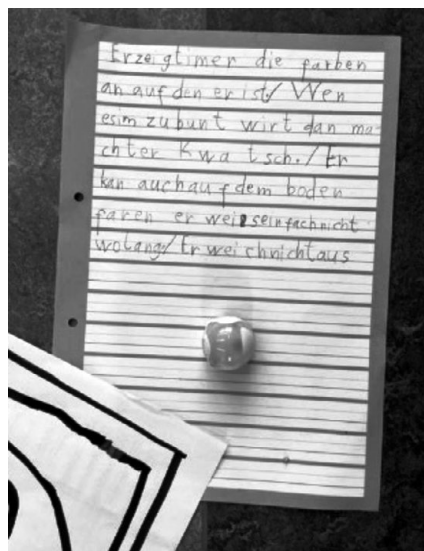 Erzeigtimer die farben
an auf den er ist/ Wen
esim zu bunt wirt dan ma-
chter Kwatsch./ Er
kan auch auf dem boden
faren er weis einfachnicht
wolang/ Er weichnichtaus